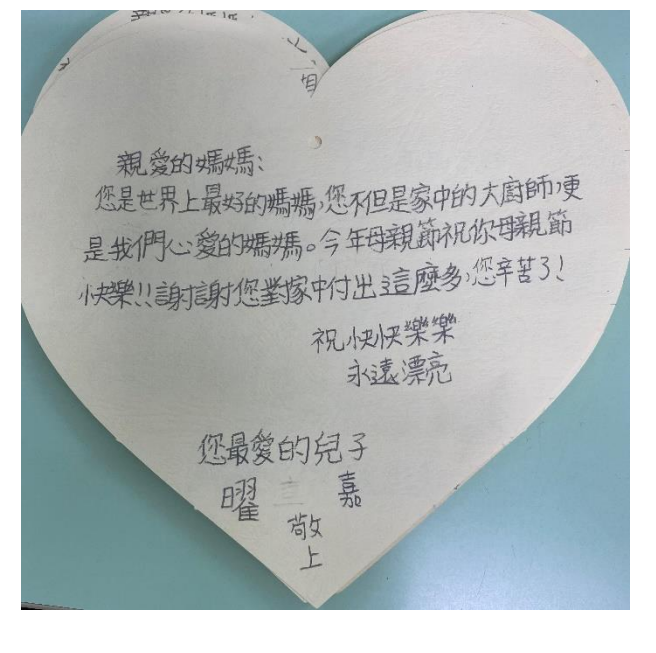 親愛的媽媽：
您是世界上最好的媽媽，您不但是家中的大廚師，更
是我們心愛的媽媽。今年母親節祝你母親節
快樂!!謝謝您對家中付出這麼多，您辛苦了!
祝快快樂樂
永遠漂亮
您最愛的兒子
曜 嘉
敬
上